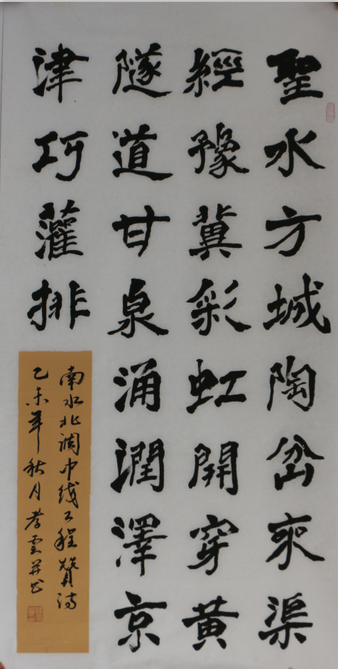 聖水方城陶岔來渠
經豫冀彩虹開穿黃
隧道甘泉涌潤澤京
津巧灌排
南水北调中线工程赞诗
乙未年秋月